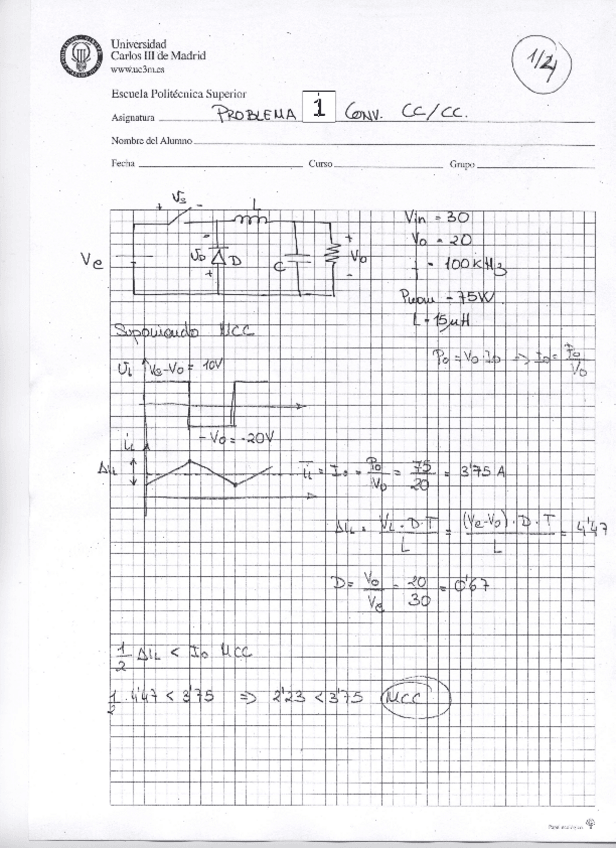 Universidad
Carlos III de Madrid
www.uc3m.es
1/4
Escuela Politécnica Superior
Asignatura PROBLEMA 1 CONV. CC/CC.
Nombre del Alumno
Fecha Curso Grupo
+ Vs - L
Ve
- VD + D
C
+ Vo -
Vin = 30
Vo = 20
f = 100 KHz
Pmax = 75W
L = 15 μH
Suponiendo MCC
Po = Vo · Io => Io = Po/Vo
UL Ve-Vo = 10V
-Vo = -20V
iL
ΔiL
iL = Io = Po/Vo = 75/20 = 3'75 A
ΔiL = VL · D · T / L = (Ve-Vo) · D · T / L = 4'47
D = Vo/Ve = 20/30 = 0'67
1/2 ΔiL < Io MCC
1/2 · 4'47 < 3'75 => 2'23 < 3'75 MCC